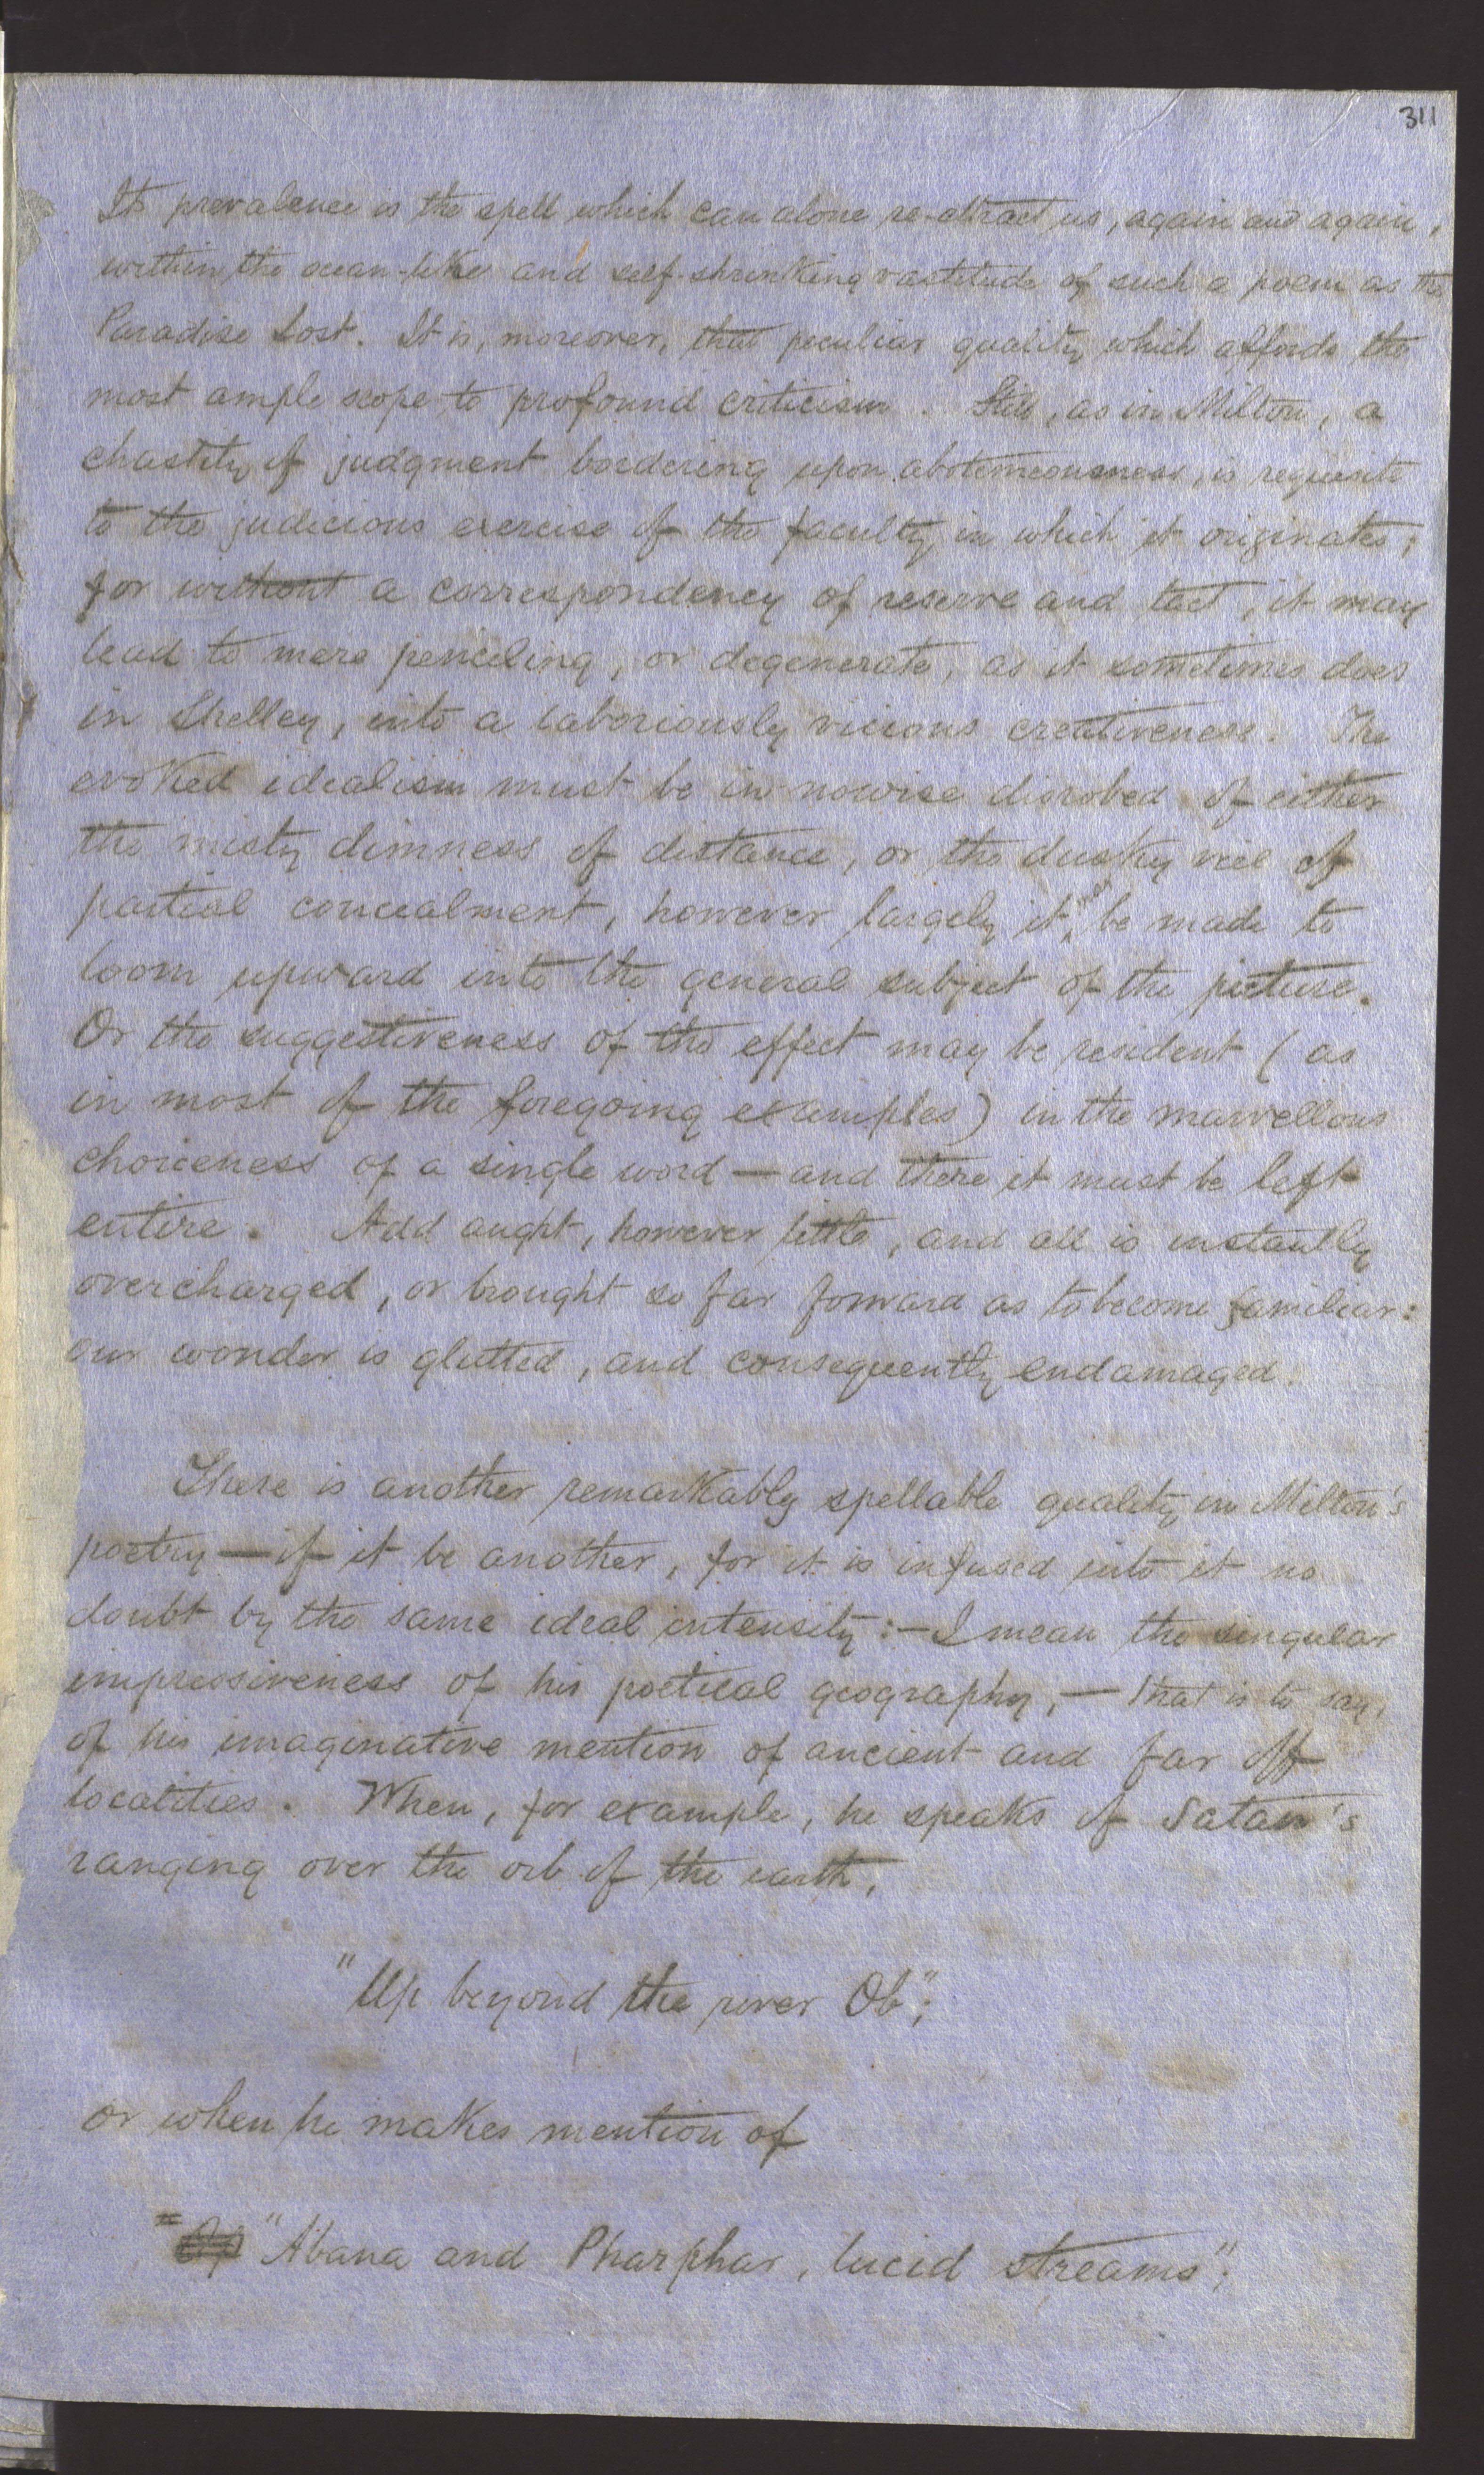 311
Its prevalence is the spell which can alone re-attract us, again and again,
within the ocean-like and self-shrinking vastitude of such a poem as the
Paradise Lost. It is, moreover, that peculiar quality which affords the
most ample scope to profound criticism. Still, as in Milton, a
chastity of judgment bordering upon abstemiousness, is requisite
to the judicious exercise of the faculty in which it originates;
for without a correspondency of reserve and tact, it may
lead to mere penciling, or degenerate, as it sometimes does
in Shelley, into a laboriously vicious creativeness. The
evoked idealism must be in nowise disrobed of either
the misty dimness of distance, or the dusky veil of
partial concealment, however largely it may be made to
loom upward into the general subject of the picture.
Or the suggestiveness of the effect may be resident (as
in most of the foregoing examples) in the marvellous
choiceness of a single word — and there it must be left
entire. Add aught, however little, and all is instantly
overcharged, or brought so far forward as to become familiar:
our wonder is glutted, and consequently endamaged.
There is another remarkably spellable quality in Milton's
poetry — if it be another, for it is infused into it no
doubt by the same ideal intensity: — I mean the singular
impressiveness of his poetical geography, — that is to say,
of his imaginative mention of ancient and far off
localities. When, for example, he speaks of Satan's
ranging over the orb of the earth,
"Up beyond the river Ob";
or when he makes mention of
"Abana and Pharphar, lucid streams";